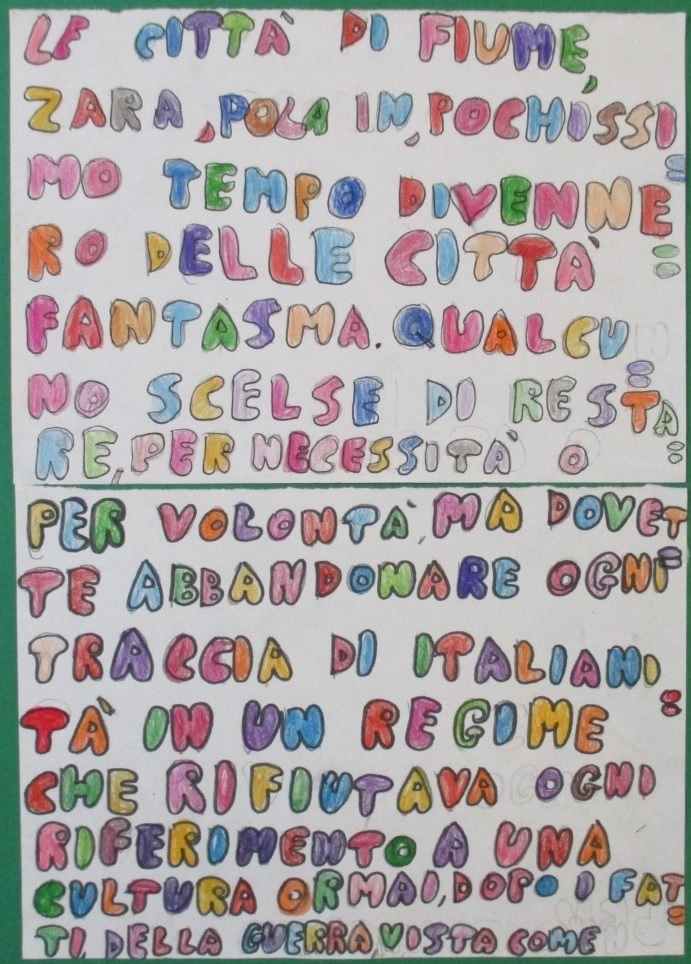 LE CITTÀ DI FIUME,
ZARA, POLA IN, POCHISSI
MO TEMPO DIVENNE=
RO DELLE CITTÀ=
FANTASMA. QUALCU
NO SCELSE DI RESTA=
RE, PER NECESSITÀ O=
PER VOLONTÀ, MA DOVET
TE ABBANDONARE OGNI=
TRACCIA DI ITALIANI
TÀ IN UN REGIME=
CHE RIFIUTAVA OGNI
RIFERIMENTO A UNA
CULTURA ORMAI, DOPO I FAT=
TI DELLA GUERRA VISTA COME